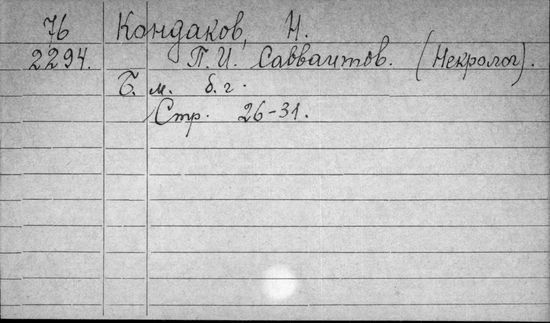 76 Кондаков, Н.
2294. П. И. Савваитов. (Некролог).
Б. м. б. г.
Стр. 26-31.